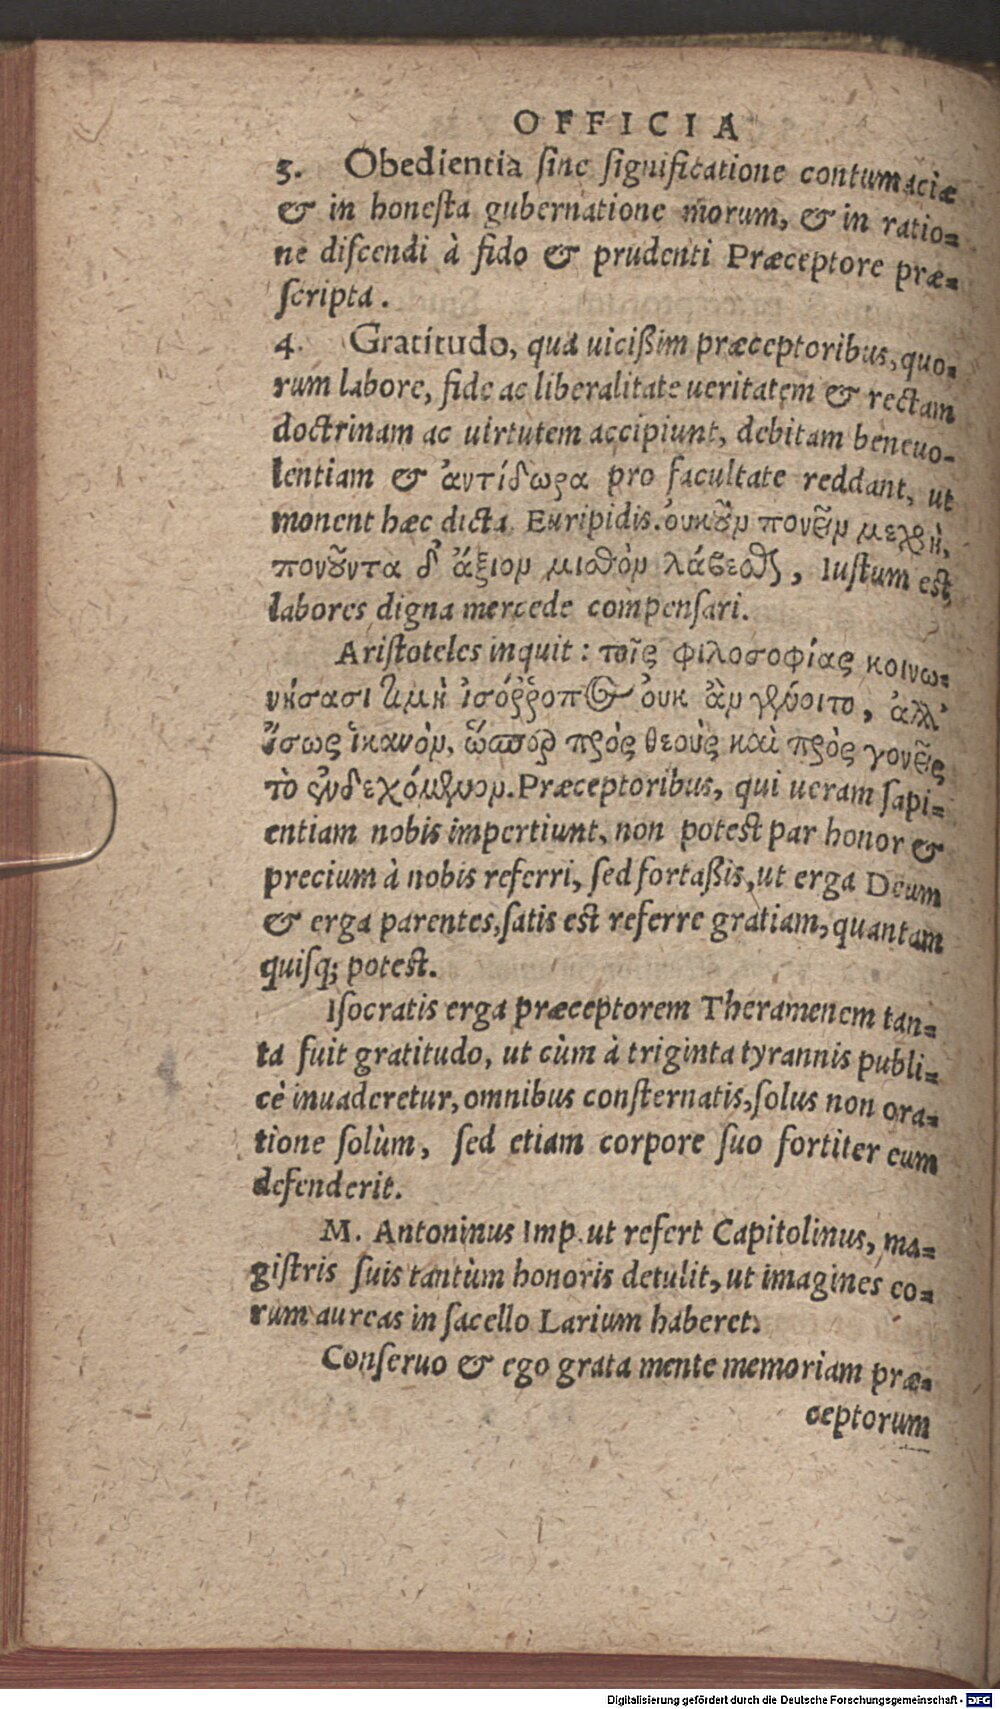 OFFICIA
3. Obedientia ſine ſignificatione contumaciæ
& in honeſta gubernatione morum, & in ratio=
ne diſcendi à fido & prudenti Præceptore præ=
ſcripta.
4. Gratitudo, qua uicißim præceptoribus, quo=
rum labore, fide ac liberalitate ueritatem & rectam
doctrinam ac uirtutem accipiunt, debitam beneuo-
lentiam & ἀντίδωρα pro facultate reddant, ut
monent hæc dicta Euripidis. ὀυκοῦν πονεῖν με χρὴ,
πονοῦντα δ' ἄξιον μισθὸν λάβεσθαι, Iuſtum eſt
labores digna mercede compenſari.
Ariſtoteles inquit: τοῖς φιλοσοφίας κοινω=
νήσασι τιμὴ ἰσόῤῥοπος ὀυκ ἂν γένοιτο, ἀλλ'
ἴσως ἱκανὸν, ὥσπερ πρὸς θεοὺς καὶ πρὸς γονεῖς
τὸ ἐνδεχόμενον. Præceptoribus, qui ueram ſapi=
entiam nobis impertiunt, non poteſt par honor &
precium à nobis referri, ſed fortaßis, ut erga Deum
& erga parentes, ſatis eſt referre gratiam, quantam
quiſq; poteſt.
Iſocratis erga præceptorem Theramenem tan=
ta fuit gratitudo, ut cùm à triginta tyrannis publi=
cè inuaderetur, omnibus conſternatis, ſolus non ora=
tione ſolùm, ſed etiam corpore ſuo fortiter eum
defenderit.
M. Antoninus Imp. ut refert Capitolinus, ma=
giſtris ſuis tantùm honoris detulit, ut imagines eo=
rum aureas in ſacello Larium haberet.
Conſeruo & ego grata mente memoriam præ=
ceptorum
Digitalisierung gefördert durch die Deutsche Forschungsgemeinschaft - DFG